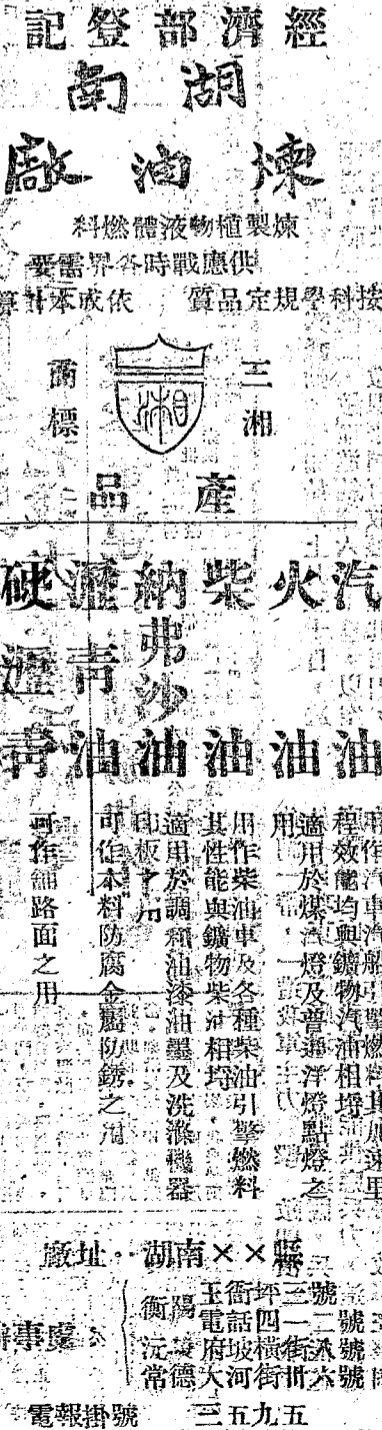 經濟部登記
湖南
煉油廠
煉製植物液體燃料
供應戰時各界需要
按科學規定品質　依成本計算
三湘
商標
產品
汽油
用作汽車汽船引擎燃料其加速里
程效能均與鑛物汽油相埒
火油
適用於煤汽燈及普通洋燈點燈之
用
柴油
用作柴油車及各種柴油引擎燃料
其性能與鑛物柴油相埒
納弗沙油
適用於調和油漆油墨及洗滌機器
印板之用
瀝青油
可作木料防腐金屬防銹之用
硬瀝青
可作舖路面之用
廠址：湖南××縣
辦事處：
衡陽
沅陵
常德
電報掛號　三五九五